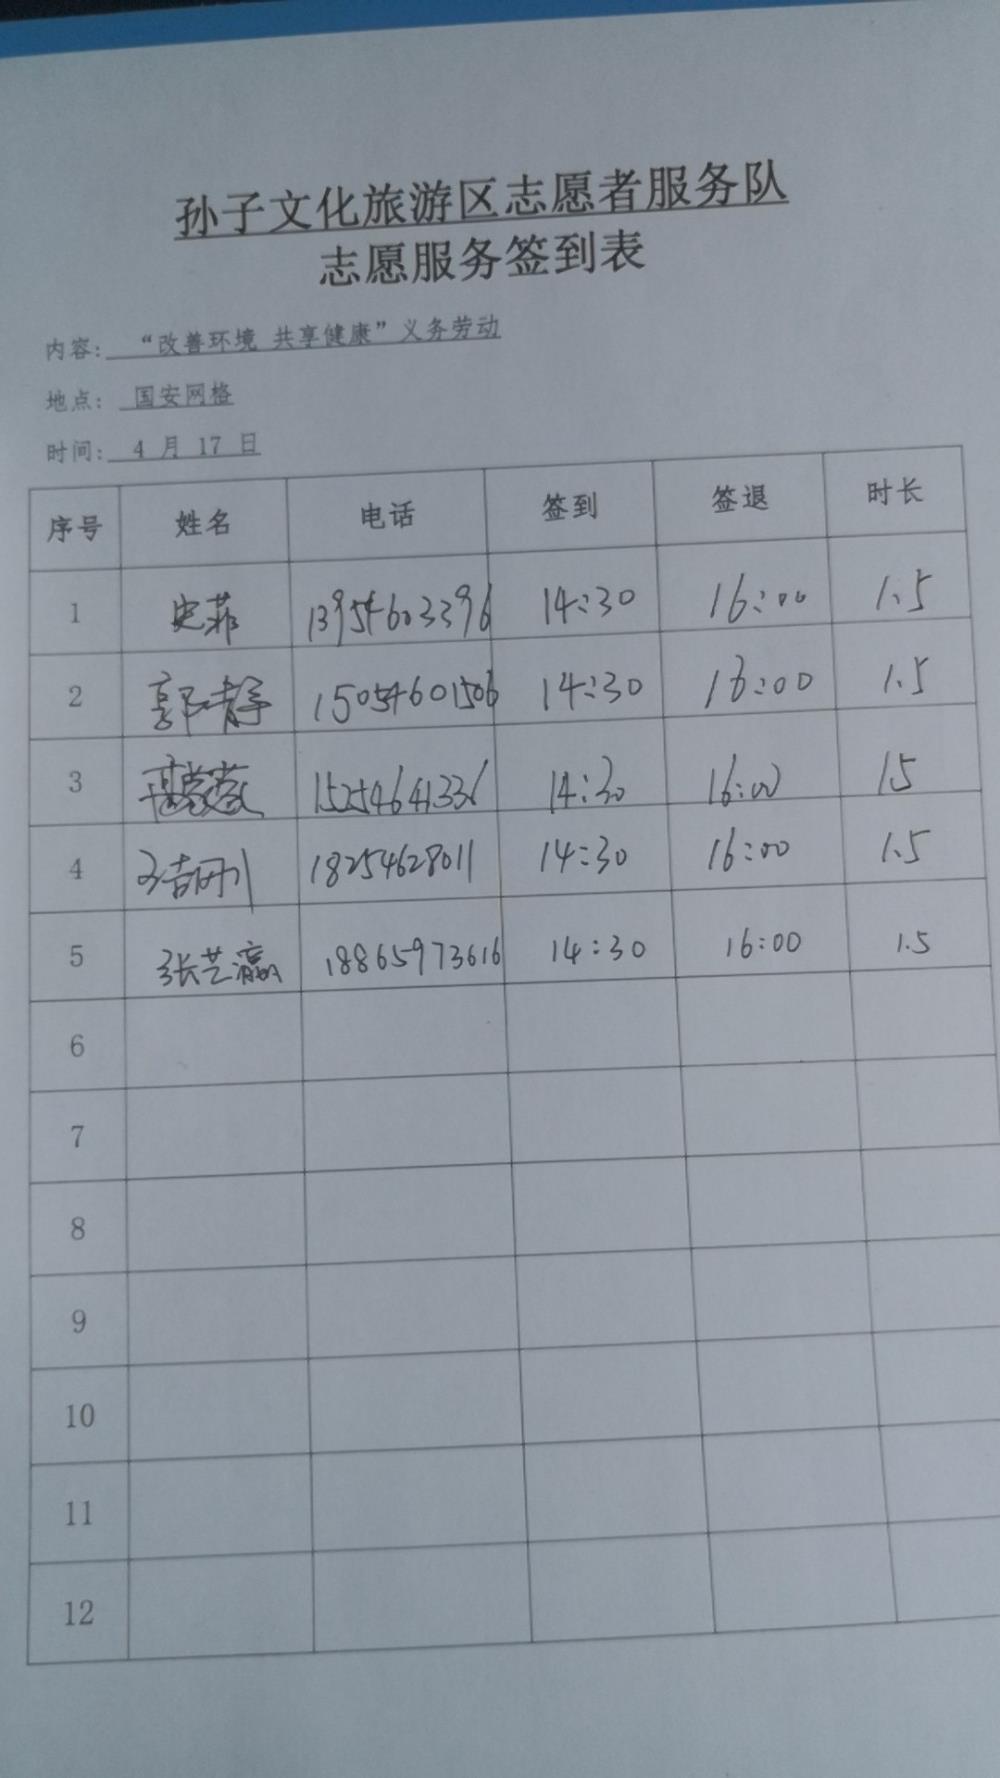 孙子文化旅游区志愿者服务队
志愿服务签到表
内容: “改善环境 共享健康”义务劳动
地点: 国安网格
时间: 4 月 17 日
序号 姓名 电话 签到 签退 时长
1 史菲 13954603396 14:30 16:00 1.5
2 郭静 15054601506 14:30 16:00 1.5
3 15254641336 14:30 16:00 15
4 18254628011 14:30 16:00 1.5
5 张艺瀛 18865973616 14:30 16:00 1.5
6
7
8
9
10
11
12